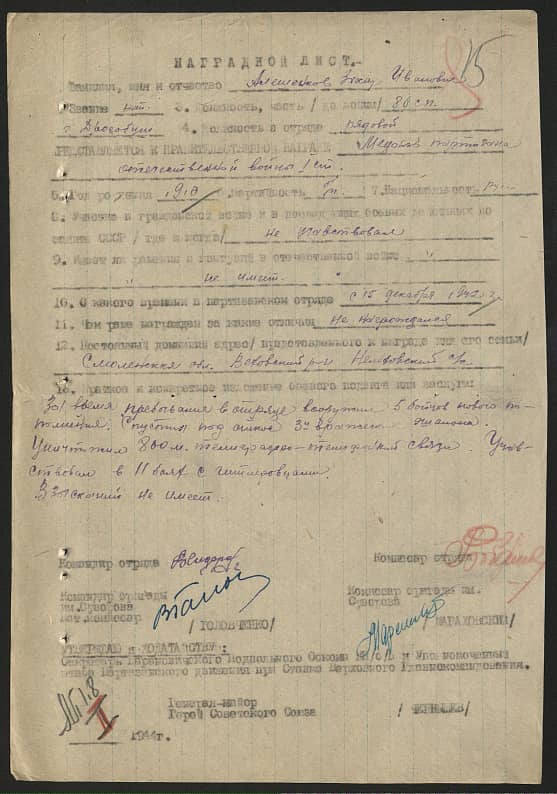 15
НАГРАДНОЙ ЛИСТ.
Фамилия, имя и отчество Иванович
Звание кап. 3. Должность, часть /до войны/ 80 с.п.
г. 4. Должность в отряде рядовой
ПРЕДСТАВЛЯЕТСЯ К ПРАВИТЕЛЬСТВЕННОЙ НАГРАДЕ Медаль партизана
отечественной войны 1 ст.
5. Год рождения 1910 6. Партийность 7. Национальность
8. Участие в гражданской войне и в последующих боевых действиях по
защите СССР /где и когда/ не участвовал
9. Имеет ли ранения и контузии в отечественной войне
не имеет.
10. С какого времени в партизанском отряде с 15 декабря 1942 г.
11. Чем ранее награжден за какие отличия не награждался
12. Постоянный домашний адрес/представляемого к награде или его семьи/
Смоленская обл. р-н с/с.
13. Краткое и конкретное изложение боевого подвига или заслуги:
За время пребывания в отряде вооружил 5 бойцов нового по-
полнения. Спустил под откос 3 вражеских эшелона.
Уничтожил 800 м. телеграфно-телефонной связи. Учав-
ствовал в 11 боях с гитлеровцами.
Взысканий не имеет.
Командир отряда Комиссар отряда
Командир бригады Комиссар бригады им.
им.Суворова Суворова
/ГОЛОВЧЕНКО/ /МАРАХОВСКИЙ/
УТВЕРЖДАЮ и ХОДАТАЙСТВУЮ:
Секретарь Барановичского Подпольного Обкома КП/б/Б и Уполномоченный
Штаба Партизанского движения при Ставке Верховного Главнокомандования.
Генерал-майор
Герой Советского Союза /ЧЕРНЫШЕВ/
II
1944г.